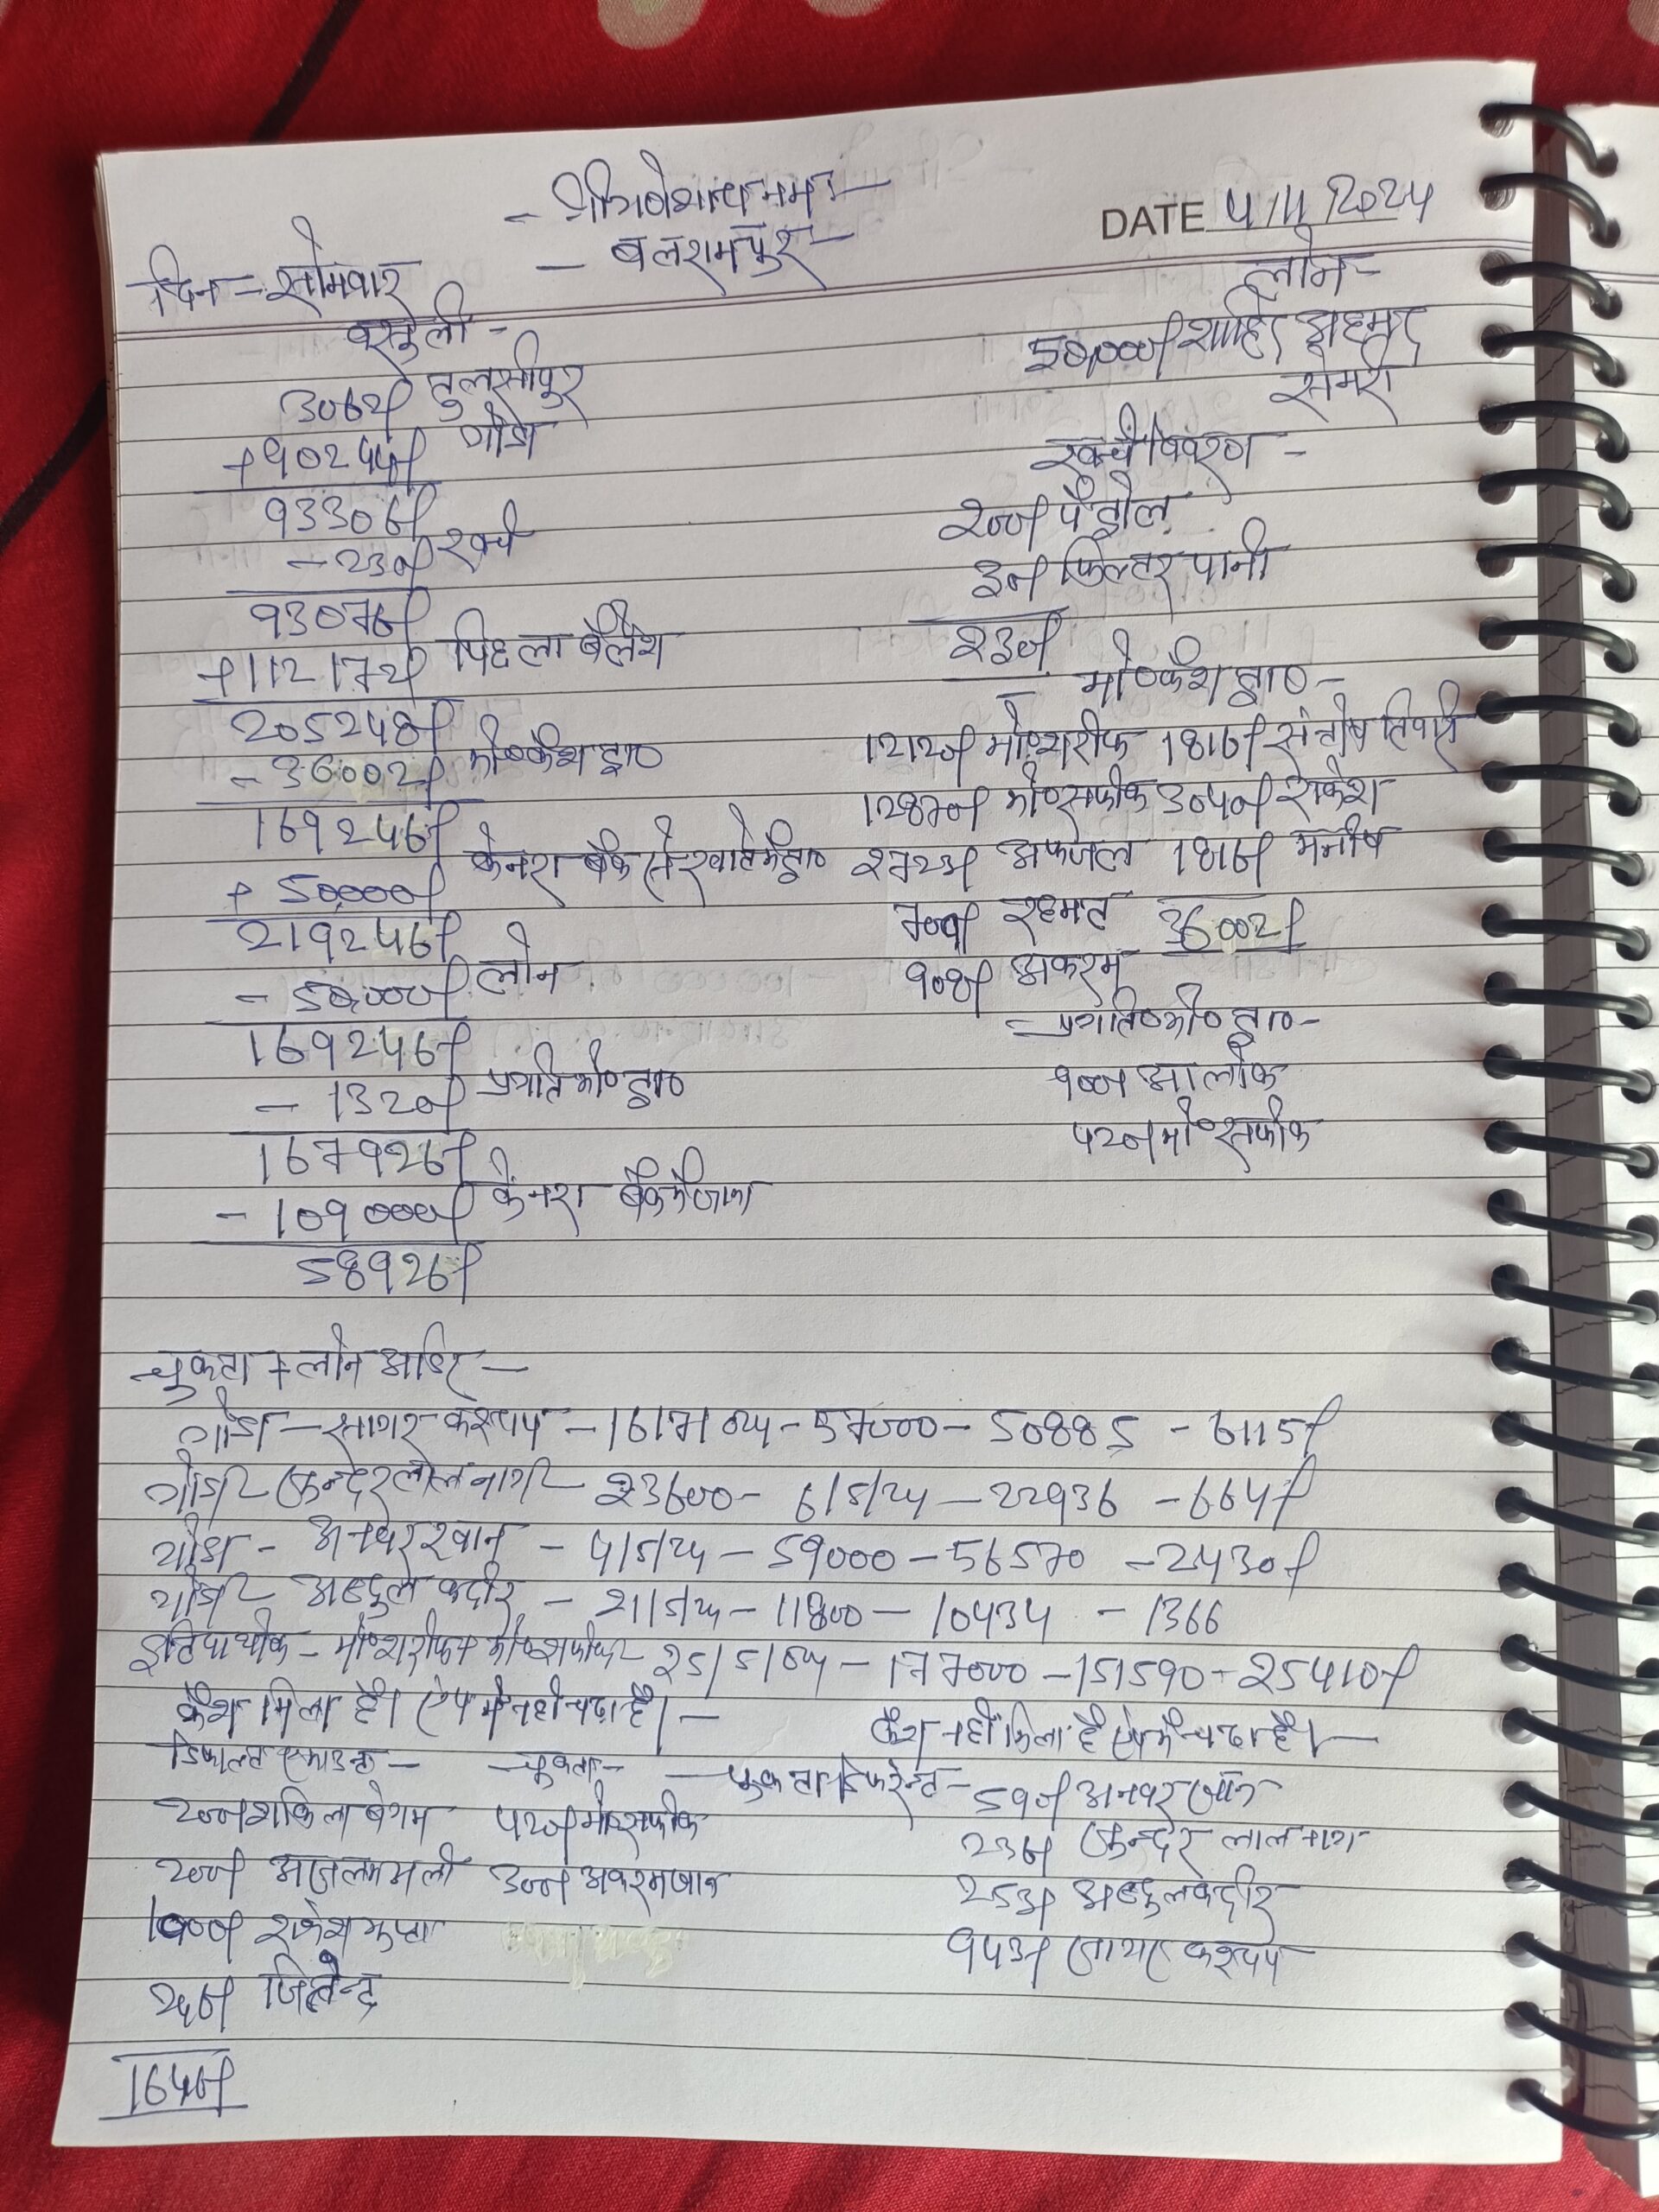 - श्री गणेशाय नमः -
DATE 4/11/2024
- बलरामपुर -
दिन - सोमवार
वसूली -
3062/ तुलसीपुर
+90244/ गोंडा
93306/
- 230/ खर्च
93076/
+112172/ पिछला बैलेंश
205248/
- 36002/ मो०कैश द्वा०
169246/
+ 50,000/ केनरा बैंक से खाते में द्वा०
219246/
- 50,000/ लोन
169246/
- 1320/ प्रगति मो० द्वा०
167926/
- 109000/ केनरा बैंक में जमा
58926/
लोन -
50,000/ शाहिद अहमद
सेमरा
खर्च विवरण -
200/ पैट्रोल
30/ फिल्टर पानी
230/
- मो०कैश द्वा० -
12120/ मो०शरीफ 1816/ संतोष तिवारी
12870/ मो०सफीक 3040/ राकेश
2723/ अफजल 1816/ मनीष
709/ रहमत 36002/
908/ अकरम
- प्रगति०मो० द्वा० -
900/ आलोक
420/ मो०सफीक
चुकता + लोन आदि -
गोंडा - सागर कश्यप - 16/7/024 - 57000 - 50885 - 6115/
गोंडा - जन्देर लाल नाग - 23600 - 6/5/24 - 22936 - 664/
गोंडा - अनवर खान - 4/5/24 - 59000 - 56570 - 2430/
गोंडा - अब्दुल कदीर - 21/5/24 - 11800 - 10434 - 1366
इटियाथोक - मो०शरीफ + मो०सफीक - 25/5/024 - 177000 - 151590 - 25410/
कैश मिला है। ऐप में नही चढ़ा है। -
कैश नहीं मिला है ऐप में चढ़ा है। -
डिफाल्ट एमाउन्ट - - चुकता - - चुकता डिफरेन्ट -
200/ शकिला बेगम 420/ मो०सफीक
200/ 300/ अकरम खान
1000/ राकेश गुप्ता
246/ जितेन्द्र
1646/
590/ अनवर खान
236/ जन्देर लाल नाग
253/ अब्दुल कदीर
943/ सागर कश्यप